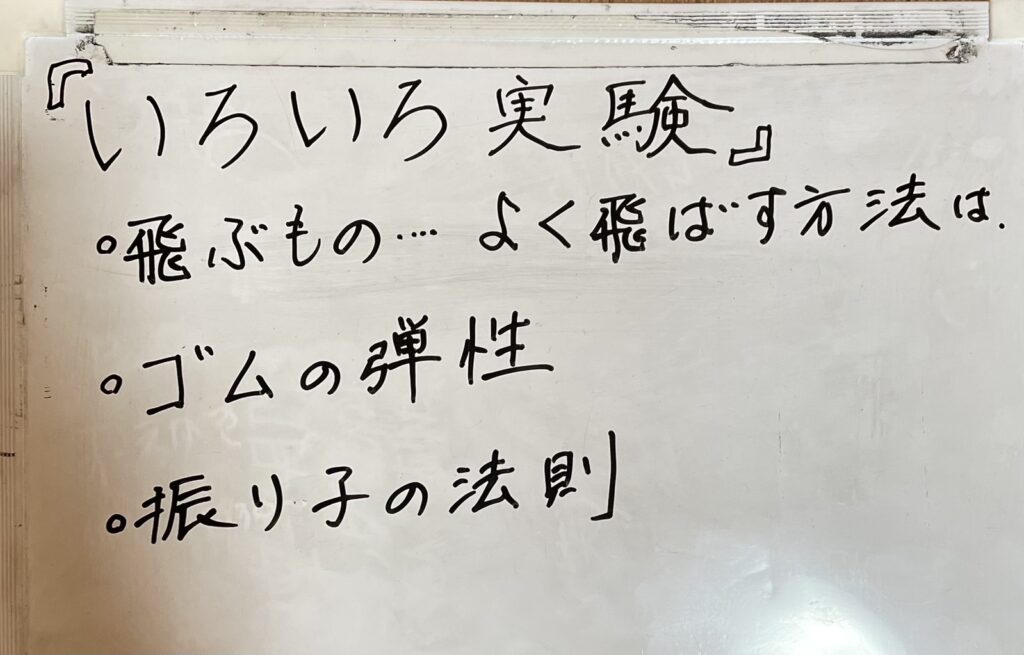 『いろいろ実験』
。飛ぶもの… よく飛ばす方法は.
。ゴムの弾性
。振り子の法則